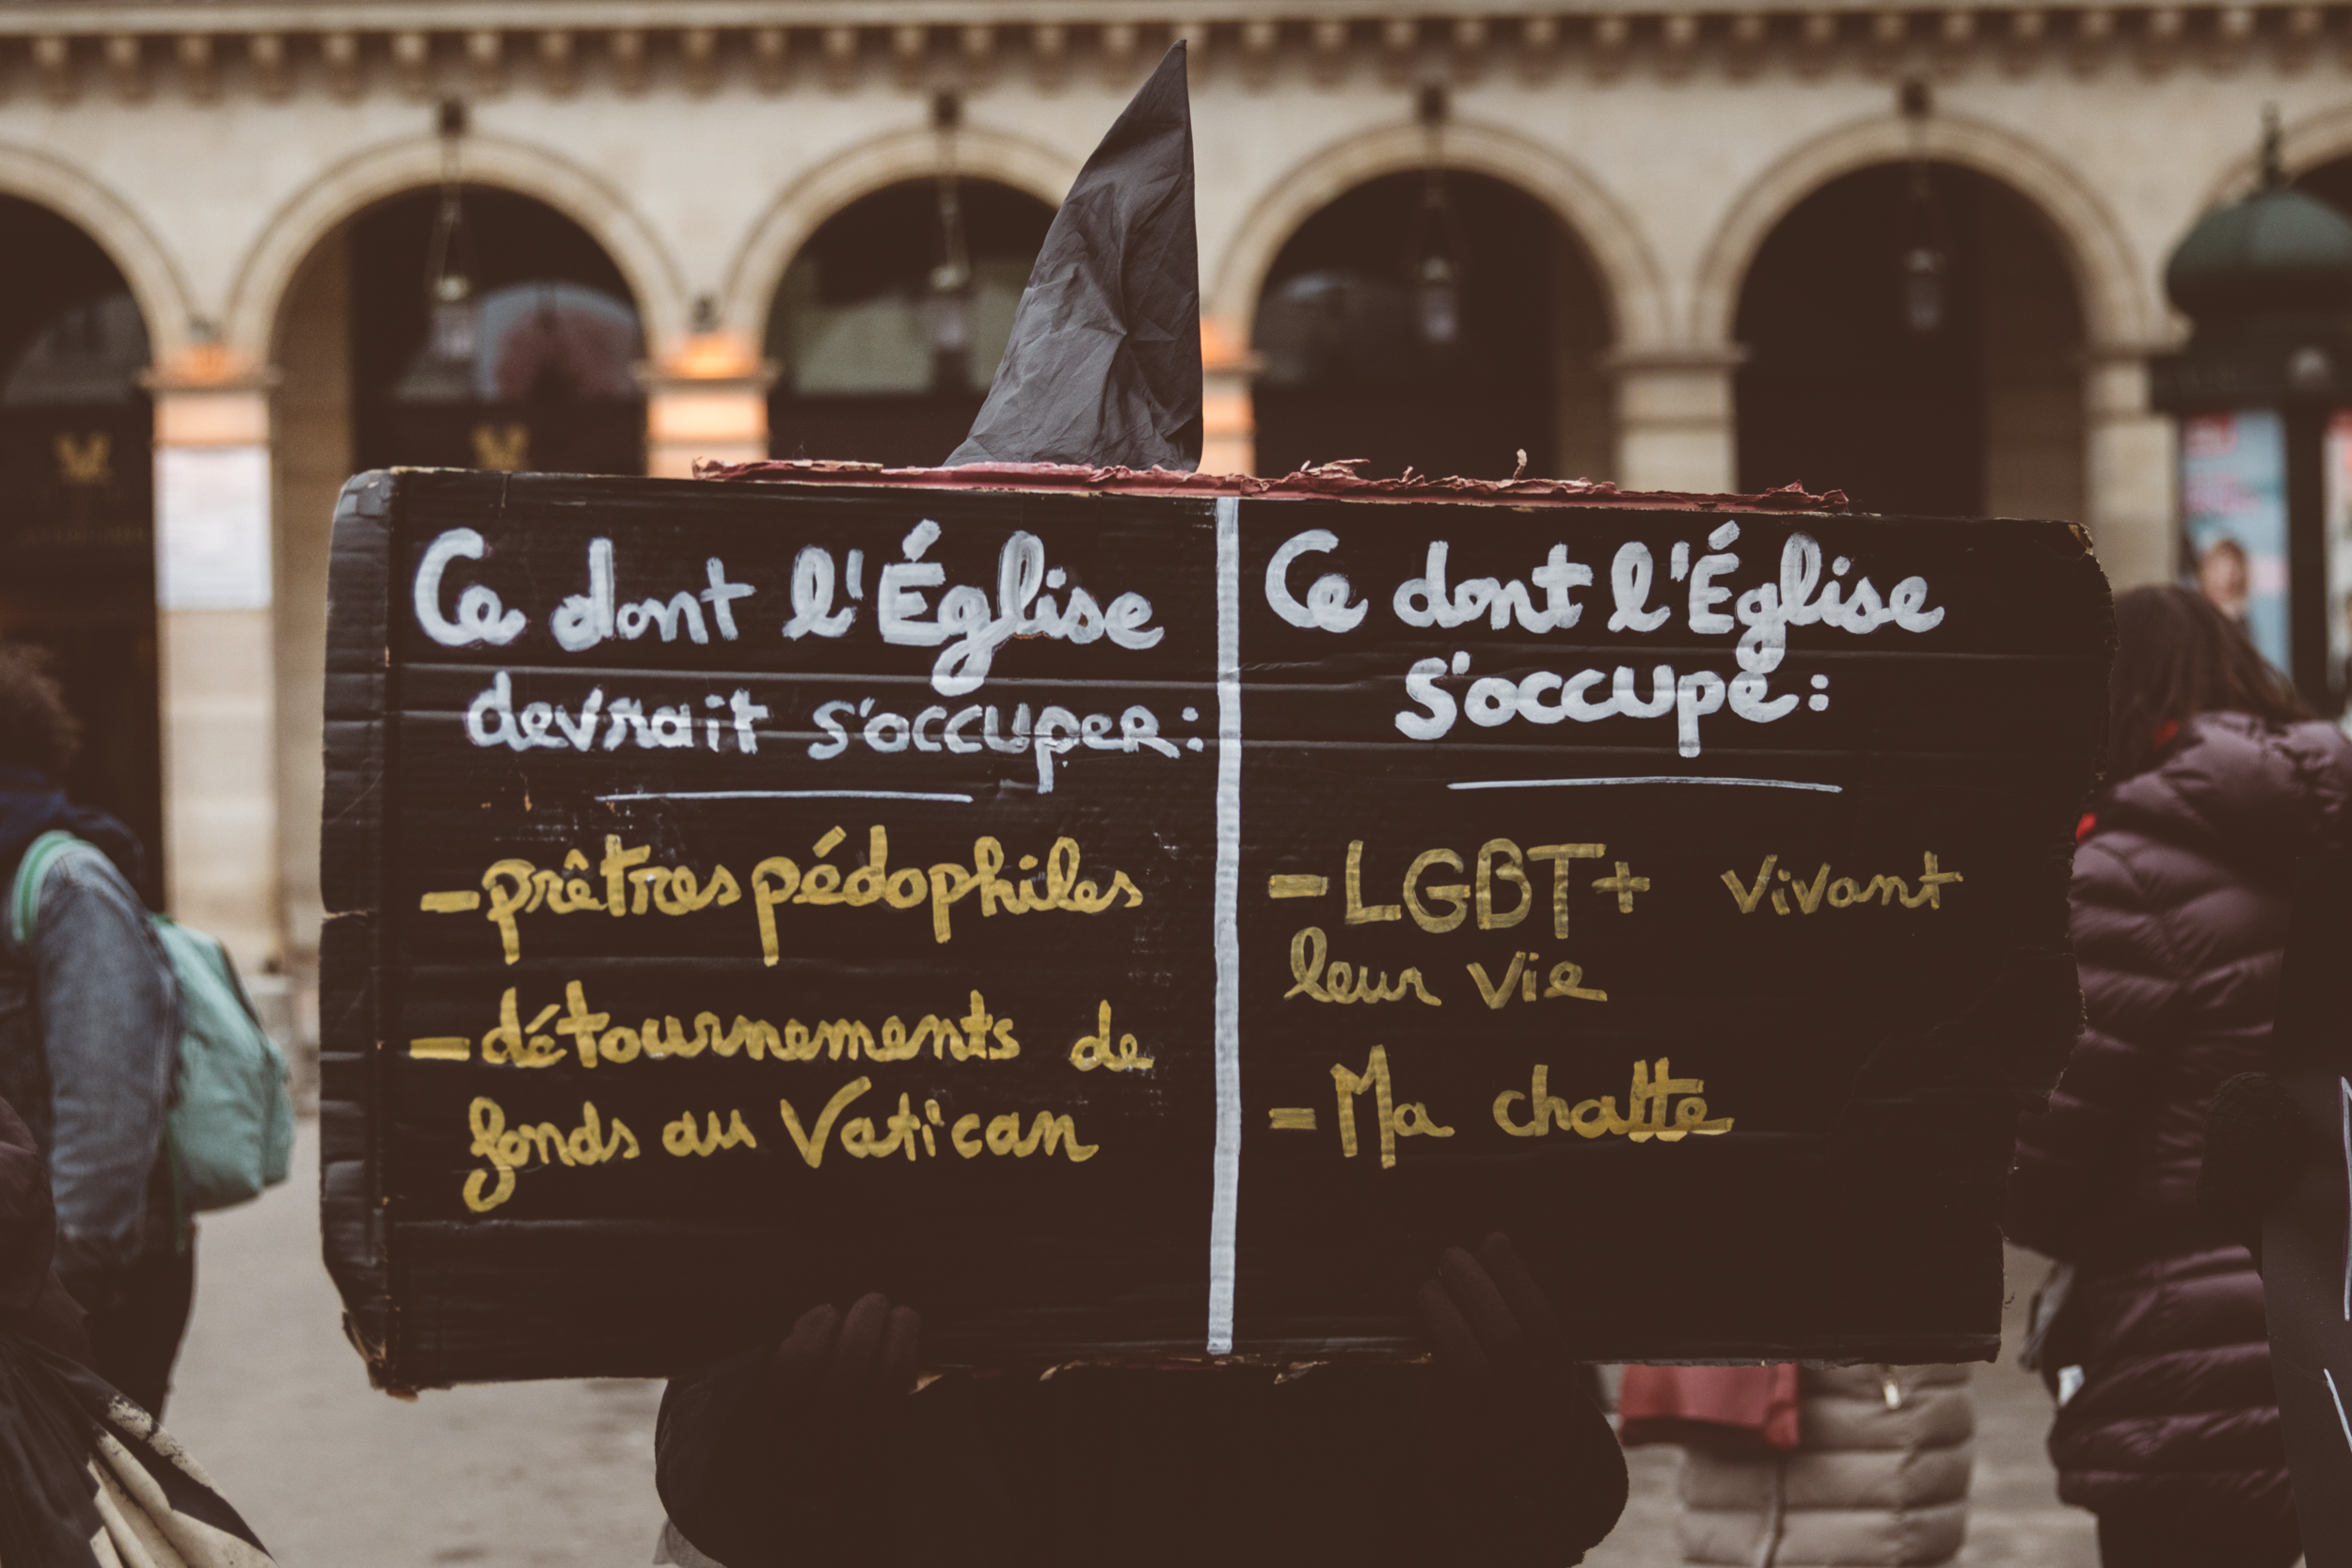 Ce dont l'Église
devrait s'occuper :
- prêtres pédophiles
- détournements de
fonds au Vatican
Ce dont l'Église
s'occupe :
- LGBT+ vivant
leur vie
- Ma chatte